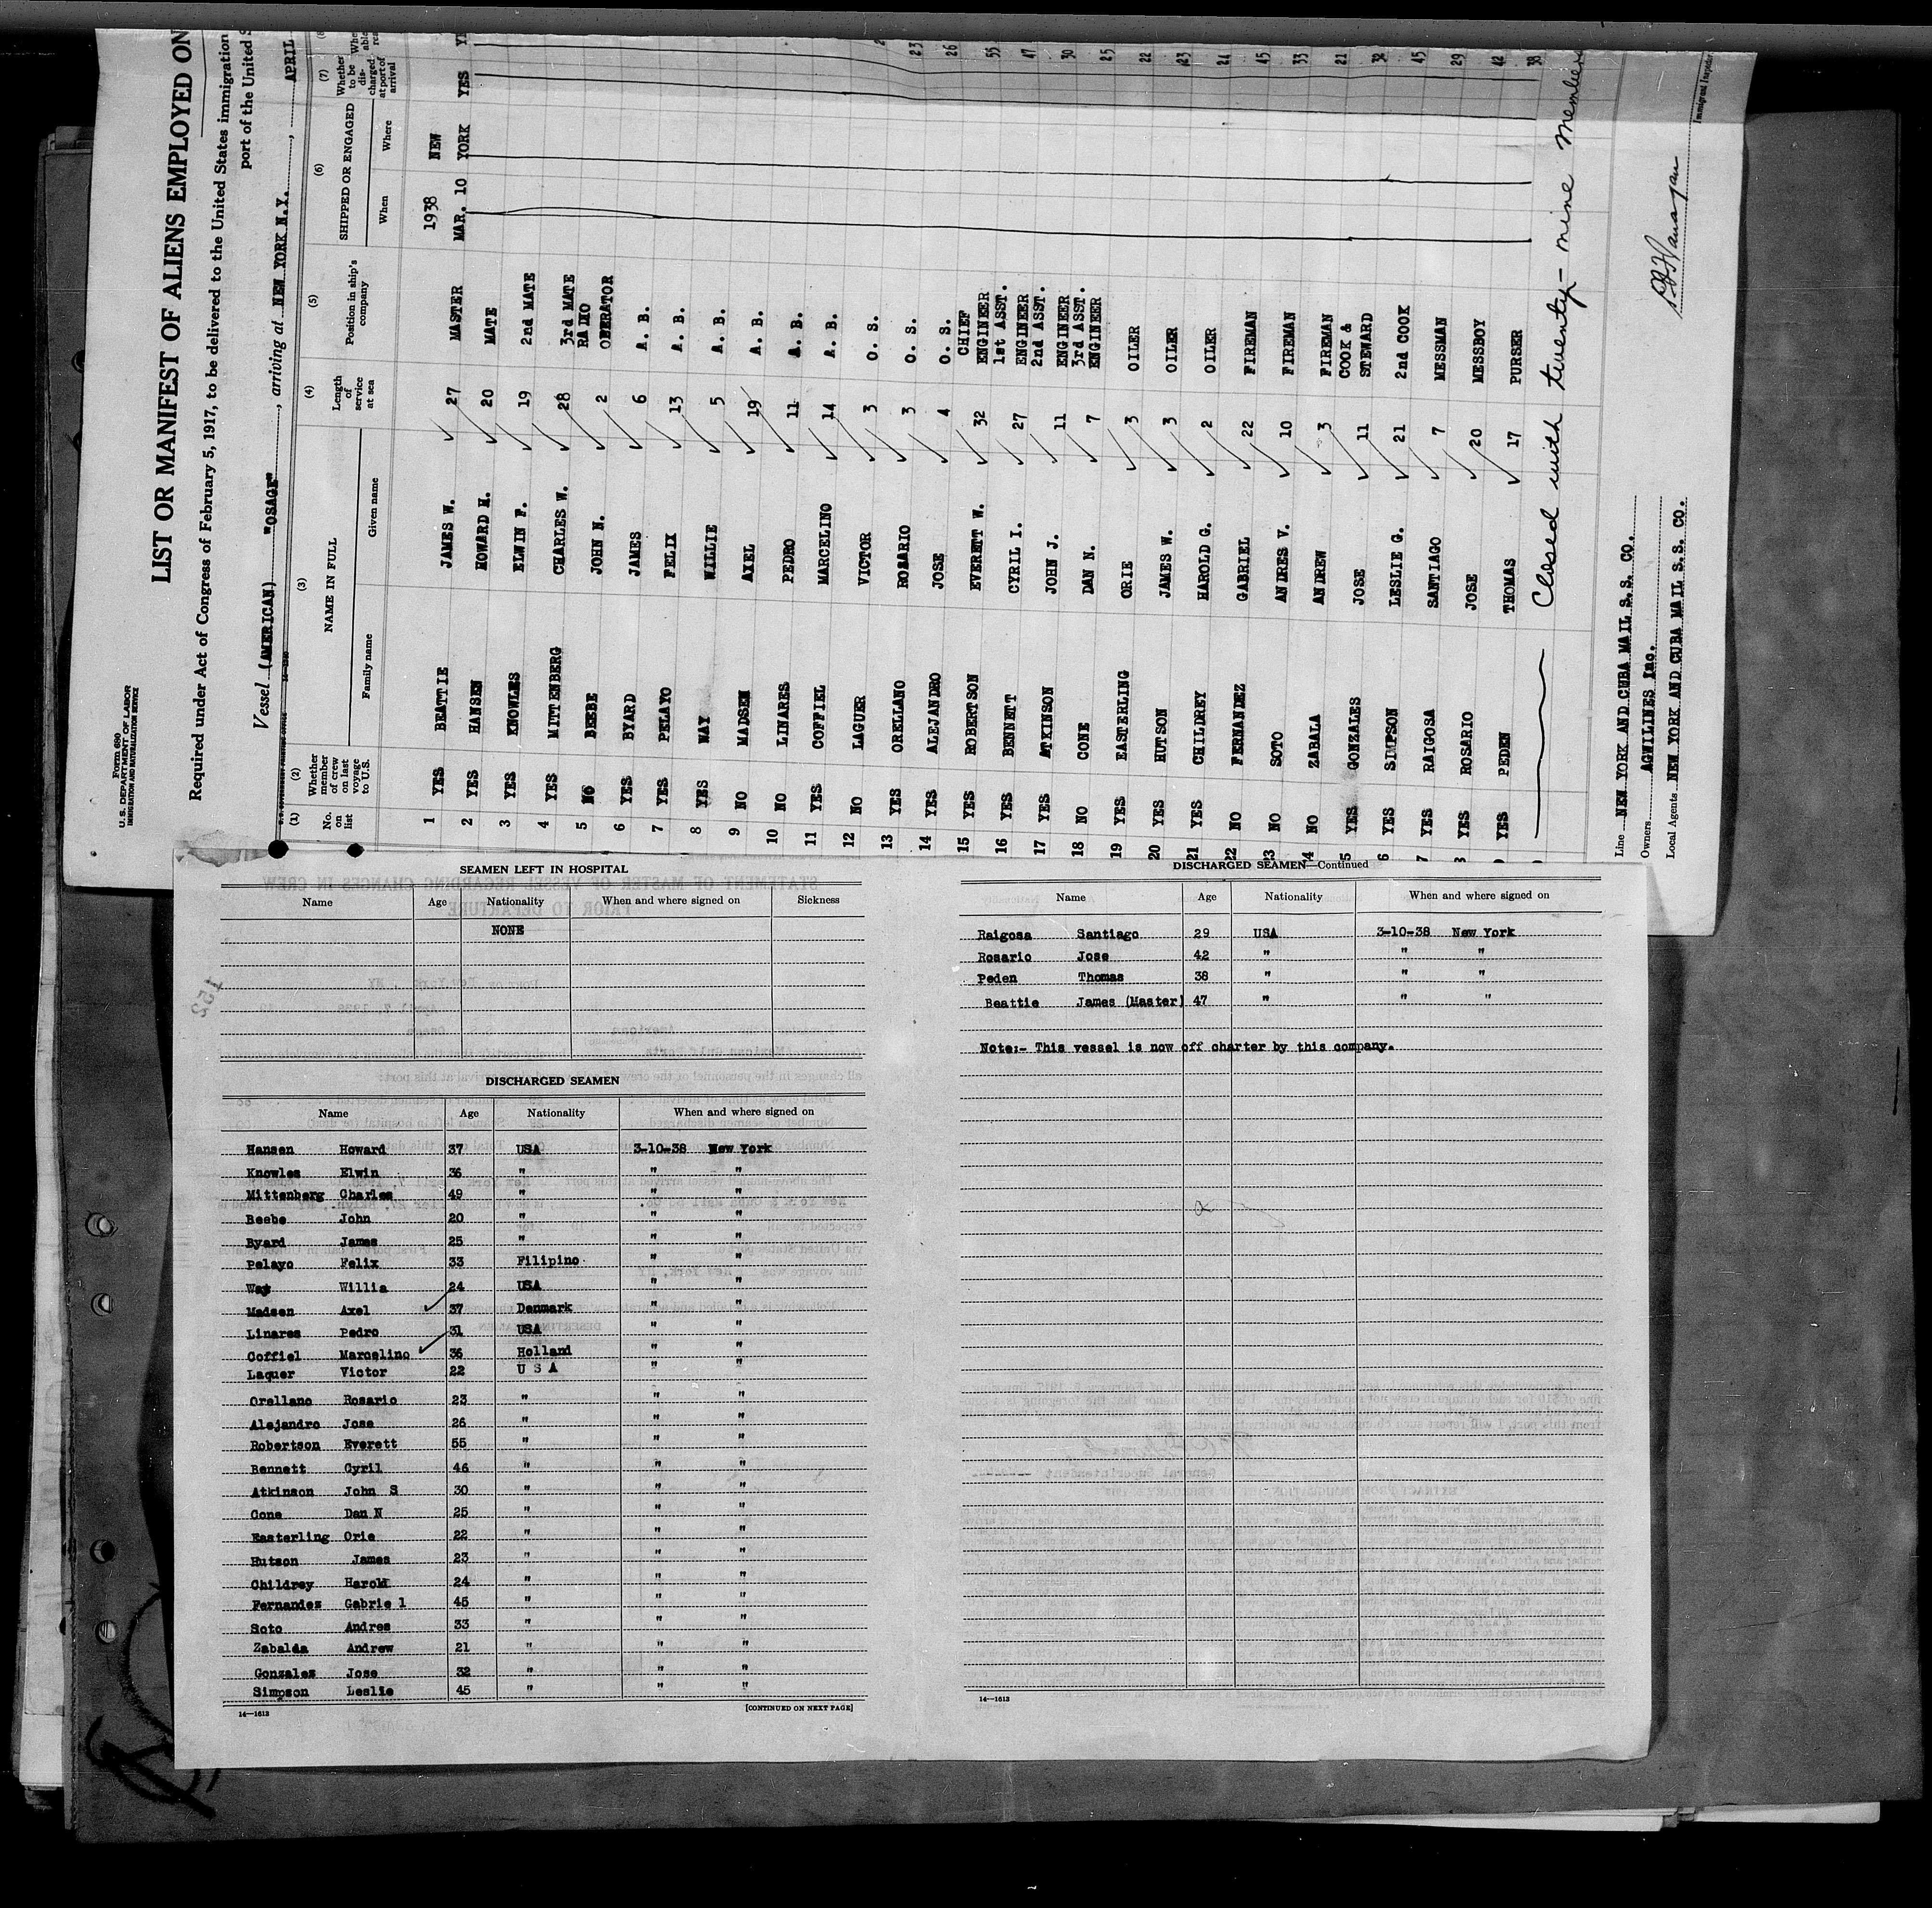 Form 680
U. S. DEPARTMENT OF LABOR
IMMIGRATION AND NATURALIZATION SERVICE
LIST OR MANIFEST OF ALIENS EMPLOYED ON
Required under Act of Congress of February 5, 1917, to be delivered to the United States immigration
port of the United S
Vessel (AMERICAN) "OSAGE", arriving at NEW YORK N.Y., APRIL
(1) (2) (3) (4) (5) (6) (7)
No. on list Whether member of crew on last voyage to U.S. NAME IN FULL Length of service at sea Position in ship's company SHIPPED OR ENGAGED Whether to be discharged at port of arrival
Family name Given name When Where
1938 NEW
1 YES BEATTIE JAMES W. 27 MASTER MAR. 10 YORK YES
2 YES HANSEN HOWARD H. 20 MATE
3 YES KNOWLES ELWIN F. 19 2nd MATE
4 YES MITTENBERG CHARLES W. 28 3rd MATE
5 NO BEEBE JOHN N. 2 RADIO OBERATOR
6 YES BYARD JAMES 6 A. B.
7 YES PELAYO FELIX 13 A. B.
8 YES WAY WILLIE 5 A. B.
9 NO MADSEN AXEL 19 A. B.
10 NO LINARES PEDRO 11 A. B.
11 YES COFFIEL MARCELINO 14 A. B.
12 NO LAGUER VICTOR 3 O. S.
13 YES ORELLANO ROSARIO 3 O. S. 23
14 YES ALEJANDRO JOSE 4 O. S. 26
15 YES ROBERTSON EVERETT W. 32 CHIEF ENGINEER 55
16 YES BENNETT CYRIL I. 27 1st ASST. ENGINEER 47
17 YES ATKINSON JOHN J. 11 2nd ASST. ENGINEER 30
18 NO CONE DAN N. 7 3rd ASST. ENGINEER 25
19 YES EASTERLING ORIE 3 OILER 22
20 YES HUTSON JAMES W. 3 OILER 23
21 YES CHILDREY HAROLD G. 2 OILER 24
22 NO FERNANDEZ GABRIEL 22 FIREMAN 45
23 NO SOTO ANDRES V. 10 FIREMAN 33
4 NO ZABALA ANDREW 3 FIREMAN 21
5 YES GONZALES JOSE 11 COOK & STEWARD 32
6 YES SIMPSON LESLIE G. 21 2nd COOK 45
7 YES RAIGOSA SANTIAGO 7 MESSMAN 29
8 YES ROSARIO JOSE 20 MESSBOY 42
YES PEDEN THOMAS 17 PURSER 38
Closed with twenty-nine members
Line NEW YORK AND CUBA MAIL S. S. CO.
Owners AGWILINES Inc.
Local Agents NEW YORK AND CUBA MAIL S. S. CO.
Immigrant Inspector
SEAMEN LEFT IN HOSPITAL
Name Age Nationality When and where signed on Sickness
NONE
DISCHARGED SEAMEN
Name Age Nationality When and where signed on
Hansen Howard 37 USA 3-10-38 New York
Knowles Elwin 36 " " "
Mittenberg Charles 49 " " "
Beebe John 20 " " "
Byard James 25 " " "
Pelayo Felix 33 Filipino " "
Way Willia 24 USA " "
Madsen Axel 37 Denmark " "
Linares Pedro 31 USA " "
Coffiel Marcelino 36 Holland " "
Laquer Victor 22 U S A " "
Orellano Rosario 23 " " "
Alejandro Jose 26 " " "
Robertson Everett 55 " " "
Bennett Cyril 46 " " "
Atkinson John S 30 " " "
Cone Dan N 25 " " "
Easterling Orie 22 " " "
Hutson James 23 " " "
Childrey Harold 24 " " "
Fernandez Gabrie l 45 " " "
Soto Andres 33 " " "
Zabalda Andrew 21 " " "
Gonzalez Jose 32 " " "
Simpson Leslie 45 " " "
14—1613 [CONTINUED ON NEXT PAGE]
DISCHARGED SEAMEN—Continued
Name Age Nationality When and where signed on
Raigosa Santiago 29 USA 3-10-38 New York
Rosario Jose 42 " " "
Peden Thomas 38 " " "
Beattie James (Master) 47 " " "
Note:- This vessel is now off charter by this company.
14—1613